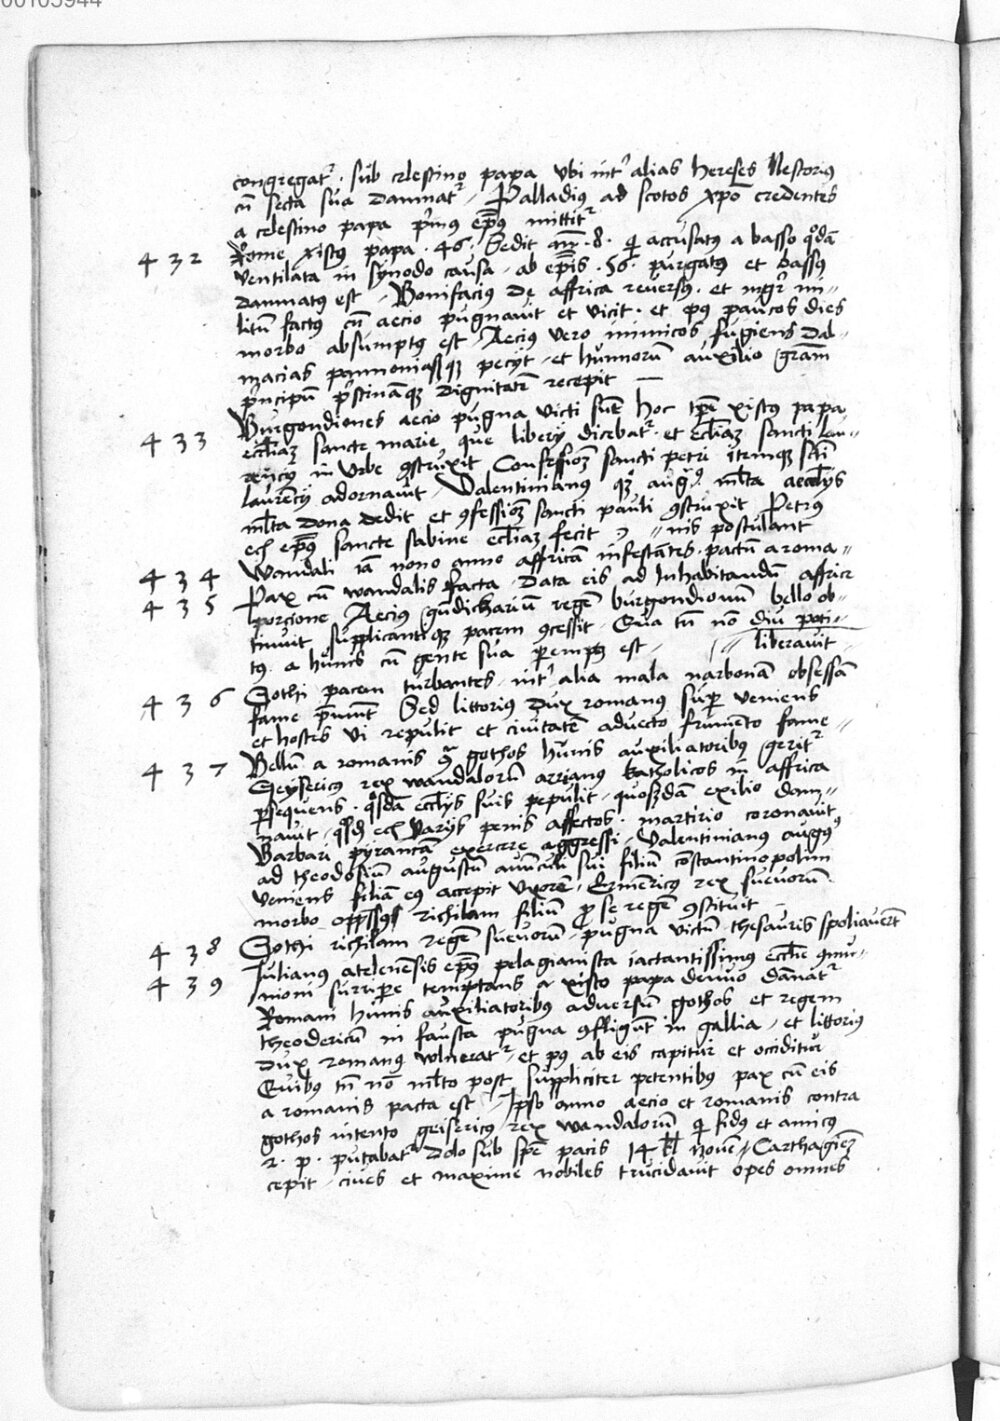 00105944
congregat᷑ · sub celestino papa vbi int᷑ alias hereses Nestorius
cū secta sua damnat᷑ · Palladius ad scotos xp̄o credentes
a celestino papa p͛mus ep̄us mittit᷑
432 Rome xistus papa · 46 · Sedit an̄ · 8 · q͛ accusatus a basso q̊dā
ventilata in synodo causa · ab ep̄is · 56 · purgatus et bassus
damnatus est · Bonifacius de affrica reversus · et mgr̄ mi-
litū factus cū aecio pugnauit et vicit · et p9 paucos dies
morbo absumptus est · Aecius vero inimicos fugiens Dal-
macias pannoniasqꝫ pecijt · et hunnorū auxilio gr̄am
p͛ncipū p͛stinamqꝫ dignitatē recepit —
433 Burgondiones aecio pugna victi sūt hoc tp̄e xistus papa
eccl̄iaꝫ sancte marie que liberij dicebat᷑ · et eccl̄iaꝫ sancti Lau-
rencij in vrbe 9struxit Confessioꝫ sancti petri itemqꝫ sc̄i
laurēcij adornauit · Valentinianus qꝫ aug9 ml̄ta aeccl̄ijs
ml̄ta dona dedit et 9fessioꝫ sancti pauli 9struxit Petrus
ecī ep̄us sancte sabine eccl̄iaꝫ fecit // nis postulant
434 Wandali iā nono anno affricā infestātes · pactū a roma-
435 Pax cū wandalis facta · Data eis ad inhabitandū affrice
porcione Aecius gūdichariū regē burgondionū bello ob-
tinuit supplicantiqꝫ pacem 9cessit · Qua tn̄ nō diu poti-
t9 a hūnis cū gente sua peremp9 est · // liberauit
436 Gothi pacem turbantes · int᷑ alia mala narbonā obsessā
fame p̄munt Sed littorius dux romanus super veniens
et hostes vi repulit et ciuitatē aduecto frumēto fame-
437 Bellū a romanis 9̄ gothos hūnis auxiliatoribus gerit᷑
Geysericus rex wandalorū arrianus katholicos in affrica
persequens · q̊sdā eccl̄ijs suis pepulit · quosdam exilio dam-
nauit · q̊sdā ecī varijs penis affectos · martirio coronauit
Barbari pyraticā exercere aggressi · Valentinianus augus
ad theodosiū augustū auunculi sui filiū costantinopolim
veniens filiā eius accepit vxorē · Ermericus rex sueuorū
morbo opp̄ssus richilam filiū pro se regē 9stituit
438 Gothi richilam regē sueuorū · pugna victū · thesauris spoliauerūt
439 Iulianus atelenēsis ep̄us pelagianista iactantissimus eccl̄ie 9mu-
nioni surripere temptans a xisto papa denuo dānat᷑
Romani hūnis auxiliatoribus aduersū gothos et regem
theodericū in fausta pugna 9fligūt in gallia · et littorius
dux romanus vulnerat᷑ · et p9 ab eis capitur et occiditur
Quibus tn̄ nō ml̄to post suppliciter petentibus pax cū eis
a romanis pacta est · Ipso anno aecio et romanis contra
gothos intento geisericus rex wandalorū q͛ fidus et amicus
r · p · putabat᷑ dolo sub spe pacis 14 kl̄ nouē · Carthagieꝫ
cepit · ciues et maxime nobiles trucidauit opes omnes